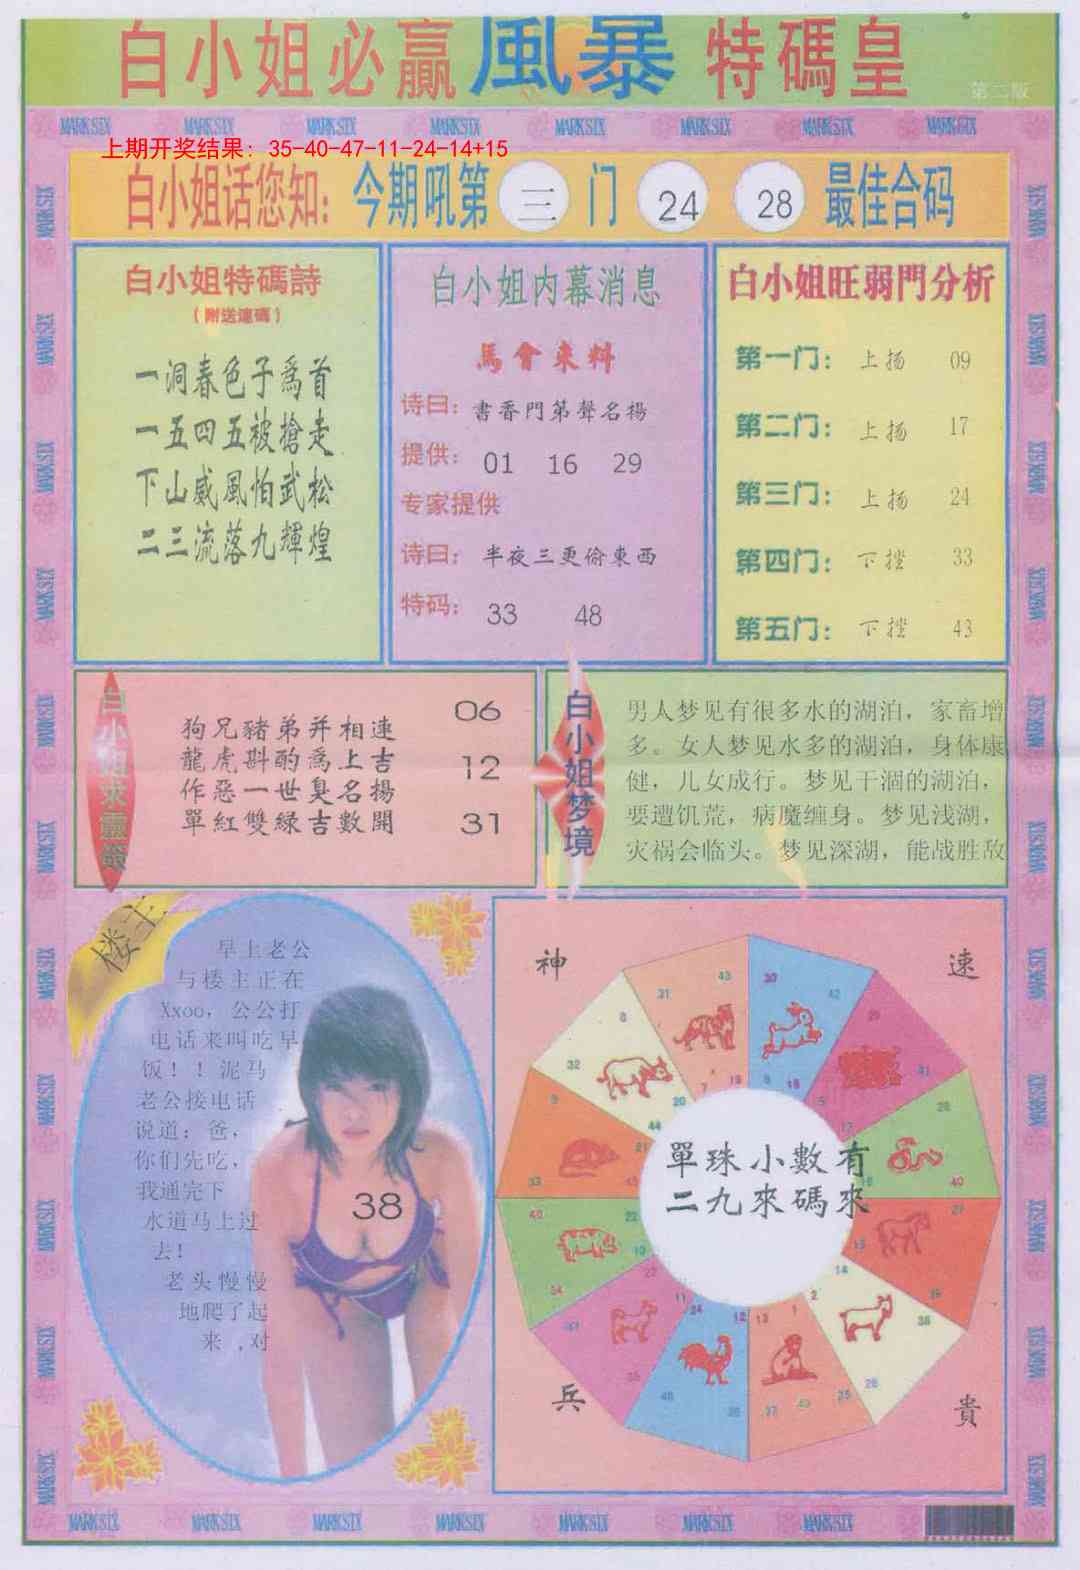 白小姐必贏風暴特碼皇
第二版
MARK SIX MARK SIX MARK SIX MARK SIX MARK SIX MARK SIX MARK SIX MARK SIX
上期开奖结果：35-40-47-11-24-14+15
白小姐话您知：今期吼第三门 24 28 最佳合码
白小姐特碼詩
(附送連碼)
一洞春色子爲首
一五四五被搶走
下山威風怕武松
二三流落九輝煌
白小姐内幕消息
馬會来料
诗曰：書香門第聲名揚
提供：01 16 29
专家提供
诗曰：半夜三更偷東西
特码：33 48
白小姐旺弱門分析
第一门：上扬 09
第二门：上扬 17
第三门：上扬 24
第四门：下挫 33
第五门：下挫 43
白小姐求靈籤
狗兄豬弟并相連
龍虎斟酌爲上吉
作惡一世臭名揚
單紅雙綠吉數開
06
12
31
白小姐梦境
男人梦见有很多水的湖泊，家畜增
多。女人梦见水多的湖泊，身体康
健，儿女成行。梦见干涸的湖泊，
要遭饥荒，病魔缠身。梦见浅湖，
灾祸会临头。梦见深湖，能战胜敌
楼主
早上老公
与楼主正在
Xxoo，公公打
电话来叫吃早
饭！！泥马
老公接电话
说道：爸，
你们先吃，
我通完下
水道马上过
去！
老头慢慢
地爬了起
来，对
38
神
速
單珠小數有
二九來碼來
兵
貴
MARK SIX MARK SIX MARK SIX MARK SIX MARK SIX MARK SIX MARK SIX